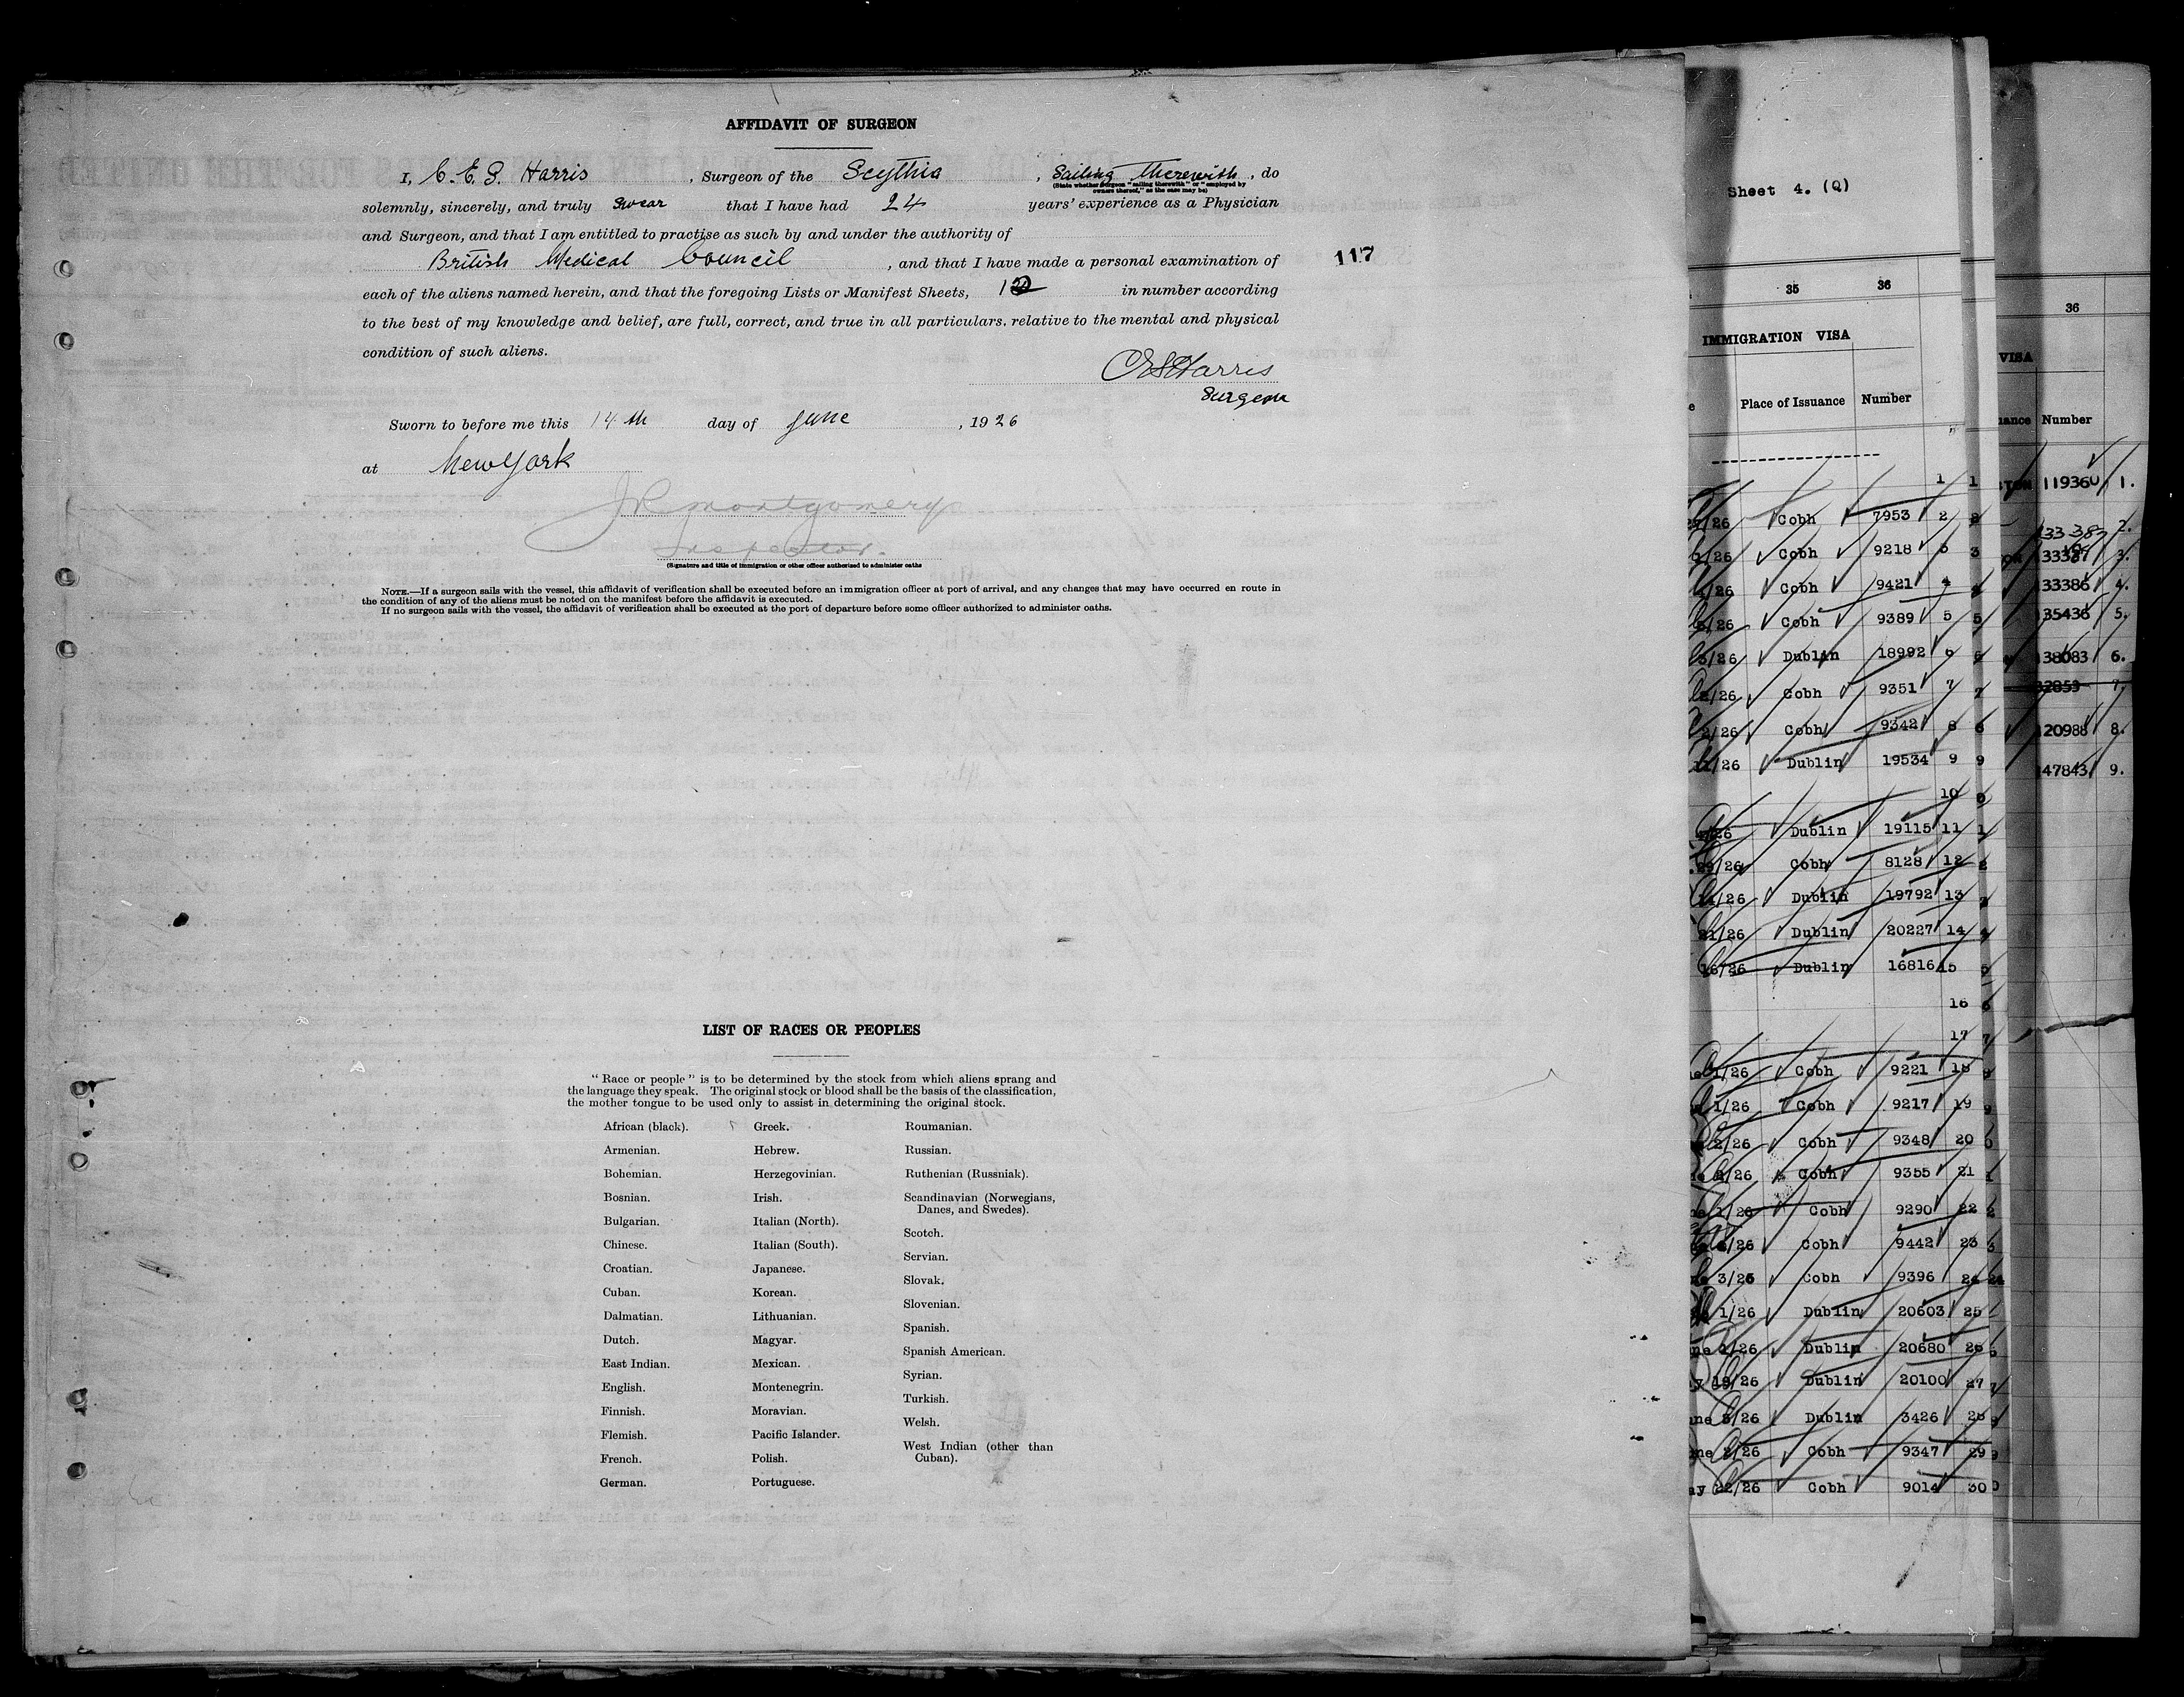 AFFIDAVIT OF SURGEON
I, C. E. S. Harris, Surgeon of the Scythia, Sailing therewith, do
(State whether Surgeon "sailing therewith" or "employed by
owners thereof," as the case may be)
solemnly, sincerely, and truly swear that I have had 24 years' experience as a Physician
and Surgeon, and that I am entitled to practise as such by and under the authority of
British Medical Council, and that I have made a personal examination of
117
each of the aliens named herein, and that the foregoing Lists or Manifest Sheets, in number according
to the best of my knowledge and belief, are full, correct, and true in all particulars. relative to the mental and physical
condition of such aliens.
CESHarris
Surgeon
Sworn to before me this 14th day of June, 1926
at New York
JR Montgomery
Inspector.
(Signature and title of immigration or other officer authorized to administer oaths
NOTE.—If a surgeon sails with the vessel, this affidavit of verification shall be executed before an immigration officer at port of arrival, and any changes that may have occurred en route in
the condition of any of the aliens must be noted on the manifest before the affidavit is executed.
If no surgeon sails with the vessel, the affidavit of verification shall be executed at the port of departure before some officer authorized to administer oaths.
LIST OF RACES OR PEOPLES
"Race or people" is to be determined by the stock from which aliens sprang and
the language they speak. The original stock or blood shall be the basis of the classification,
the mother tongue to be used only to assist in determining the original stock.
African (black).
Armenian.
Bohemian.
Bosnian.
Bulgarian.
Chinese.
Croatian.
Cuban.
Dalmatian.
Dutch.
East Indian.
English.
Finnish.
Flemish.
French.
German.
Greek.
Hebrew.
Herzegovinian.
Irish.
Italian (North).
Italian (South).
Japanese.
Korean.
Lithuanian.
Magyar.
Mexican.
Montenegrin.
Moravian.
Pacific Islander.
Polish.
Portuguese.
Roumanian.
Russian.
Ruthenian (Russniak).
Scandinavian (Norwegians,
Danes, and Swedes).
Scotch.
Servian.
Slovak.
Slovenian.
Spanish.
Spanish American.
Syrian.
Turkish.
Welsh.
West Indian (other than
Cuban).
Sheet 4. (Q)
35 36
IMMIGRATION VISA
Place of Issuance Number
1
/26 Cobh 7953 2
/26 Cobh 9218 3
/26 Cobh 9421 4
/26 Cobh 9389 5
/26 Dublin 18992 6
/26 Cobh 9351 7
/26 Cobh 9342 8
/26 Dublin 19534 9
10
/26 Dublin 19115 11
/26 Cobh 8128 12
/26 Dublin 19792 13
21/26 Dublin 20227 14
16/26 Dublin 16816 15
16
17
1/26 Cobh 9221 18
1/26 Cobh 9217 19
2/26 Cobh 9348 20
/26 Cobh 9355 21
1/26 Cobh 9290 22
/26 Cobh 9442 23
3/26 Cobh 9396 24
1/26 Dublin 20603 25
/26 Dublin 20680 26
/26 Dublin 20100 27
/26 Dublin 3426 28
2/26 Cobh 9347 29
22/26 Cobh 9014 30
36
VISA
Number
119360 1.
2.
33387 3.
33386 4.
35436 5.
38083 6.
7.
20988 8.
47843 9.